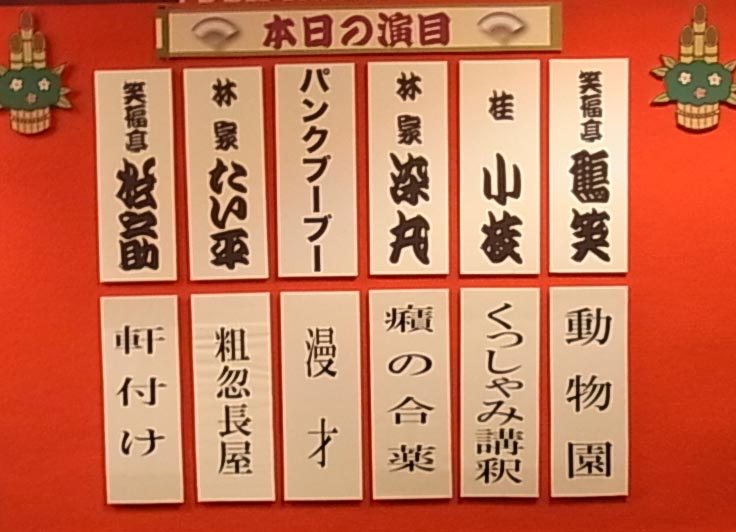 本日の演目
笑福亭 鶴笑
動物園
桂 小枝
くっしゃみ講釈
林家 染丸
癪の合薬
パンクブーブー
漫才
林家 たい平
粗忽長屋
笑福亭 松之助
軒付け